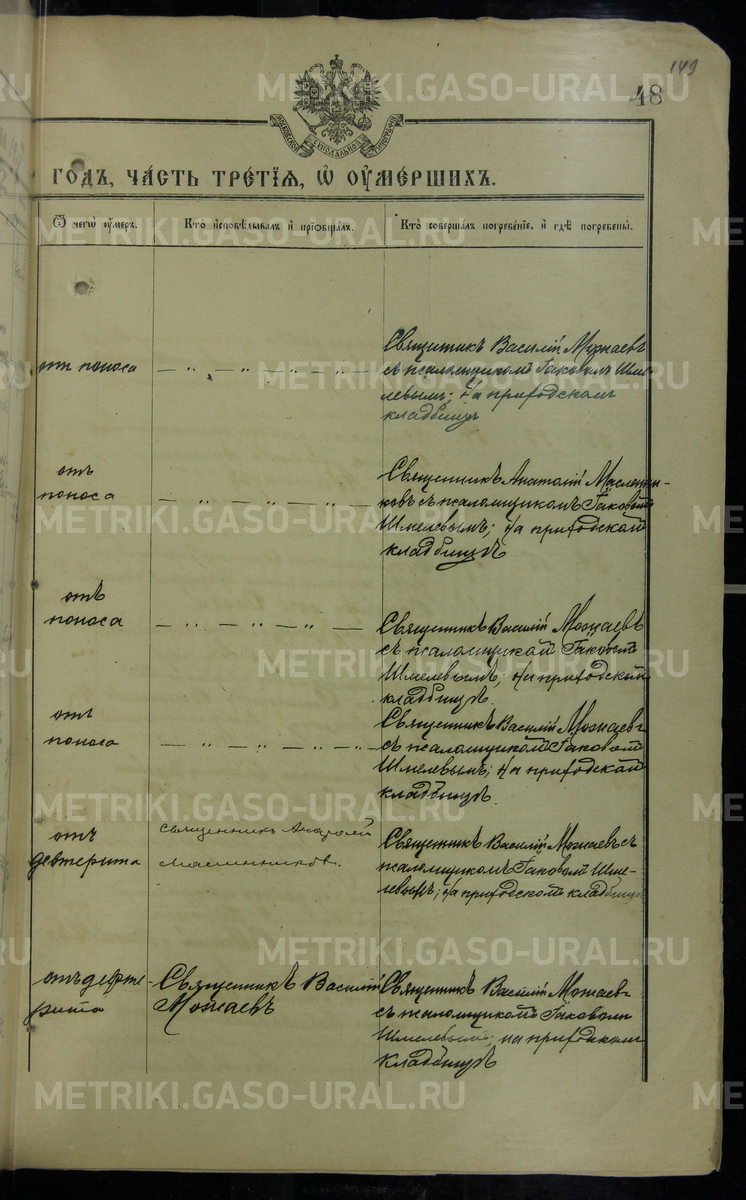 149
48
МОСКОВСКОЙ СѴНОДАЛЬНОЙ ТИПОГРАФІИ
ГОДЪ, ЧА́СТЬ ТРЕ́ТІѦ, Ѡ҆ ОУ҆МЕ́РШИХЪ.
Ѿ чегѡ̀ оу҆́меръ.
Кто̀ и҆сповѣ́дывалъ и҆ прїѡбща́лъ.
Кто̀ соверша́лъ погребе́нїе, и҆ гдѣ̀ погребены̀.
от поноса
— " — " — " —
Священникъ Василій Можаевъ
съ псаломщикомъ Іаковомъ Шме-
левымъ; на приходскомъ
кладбищѣ
отъ
поноса
— " — " — " —
Священникъ Анатолій Масленни-
ковъ съ псаломщикомъ Іаковомъ
Шмелевымъ; на приходскомъ
кладбищѣ
отъ
поноса
— " — " — " —
Священникъ Василій Можаевъ
съ псаломщикомъ Іаковомъ
Шмелевымъ; на приходскомъ
кладбищѣ.
отъ
поноса
— " — " — " — " —
Священникъ Василій Можаевъ
съ псаломщикомъ Іаковомъ
Шмелевымъ; на приходскомъ
кладбищѣ.
отъ
девтерита
священникъ Анатолій
Масленниковъ.
Священникъ Василій Можаевъ съ
псаломщикомъ Іаковомъ Шме-
левымъ; на приходскомъ кладбищѣ
отъ дефте-
рита
Священникъ Василій
Можаевъ
Священникъ Василій Можаевъ
съ псаломщикомъ Іаковомъ
Шмелевымъ; на приходскомъ
кладбищѣ
METRIKI.GASO-URAL.RU